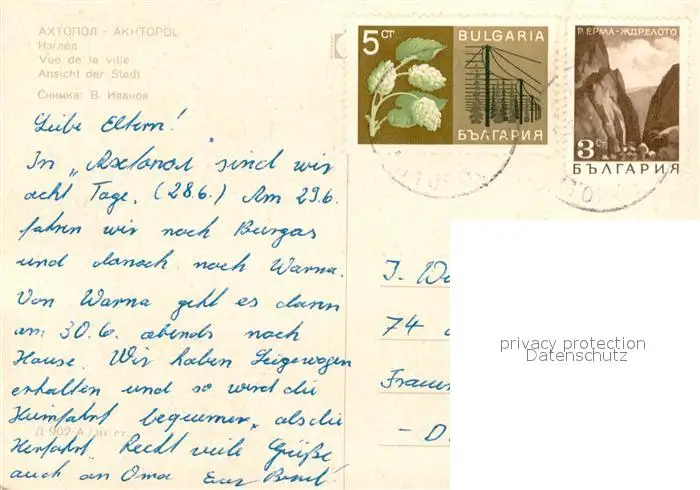 АХТОПОЛ - AKHTOPOL
Изглед
Vue de la ville
Ansicht der Stadt
Снимка: В. Иванов
5 СТ
BULGARIA
БЪЛГАРИЯ
Р. ЕРМА-ЖДРЕЛОТО
3 СТ
БЪЛГАРИЯ
Leibe Eltern!
In „Ахтопол" sind wir
acht Tage. (28.6.) Am 29.6.
fahren wir nach Burgas
und danach nach Warna.
Von Warna geht es dann
am 30.6. abends nach
Hause. Wir haben Liegewagen
erhalten und so wird die
Heimfahrt bequemer, als die
Herfahrt. Recht viele Grüße
auch an Oma Euer
Д-902-А
J. W
74
Frauen
- D.
privacy protection
Datenschutz